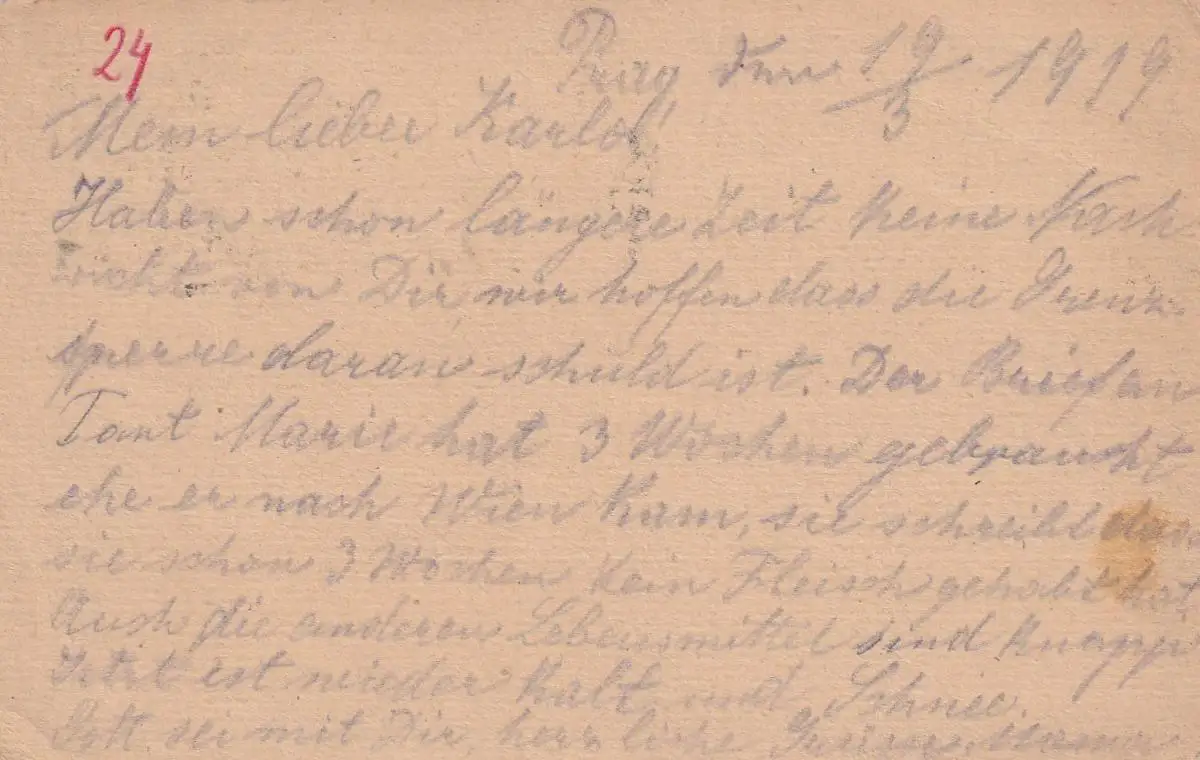 24
Prag den 19/3. 1919
Mein lieber Karlo!
Haben schon längere Zeit keine Nach
richt von Dir, wir hoffen dass die Grenz
sperre daran schuld ist. Der Brief an
Tant Marie hat 3 Wochen gebraucht
ehe er nach Wien kam, sie schreibt dass
sie schon 3 Wochen kein Fleisch gehabt hat.
Auch die anderen Lebensmittel sind knapp
Jetzt ist wieder kalt und Schnee.
Gott sei mit Dir, herzliche Grüsse Mama